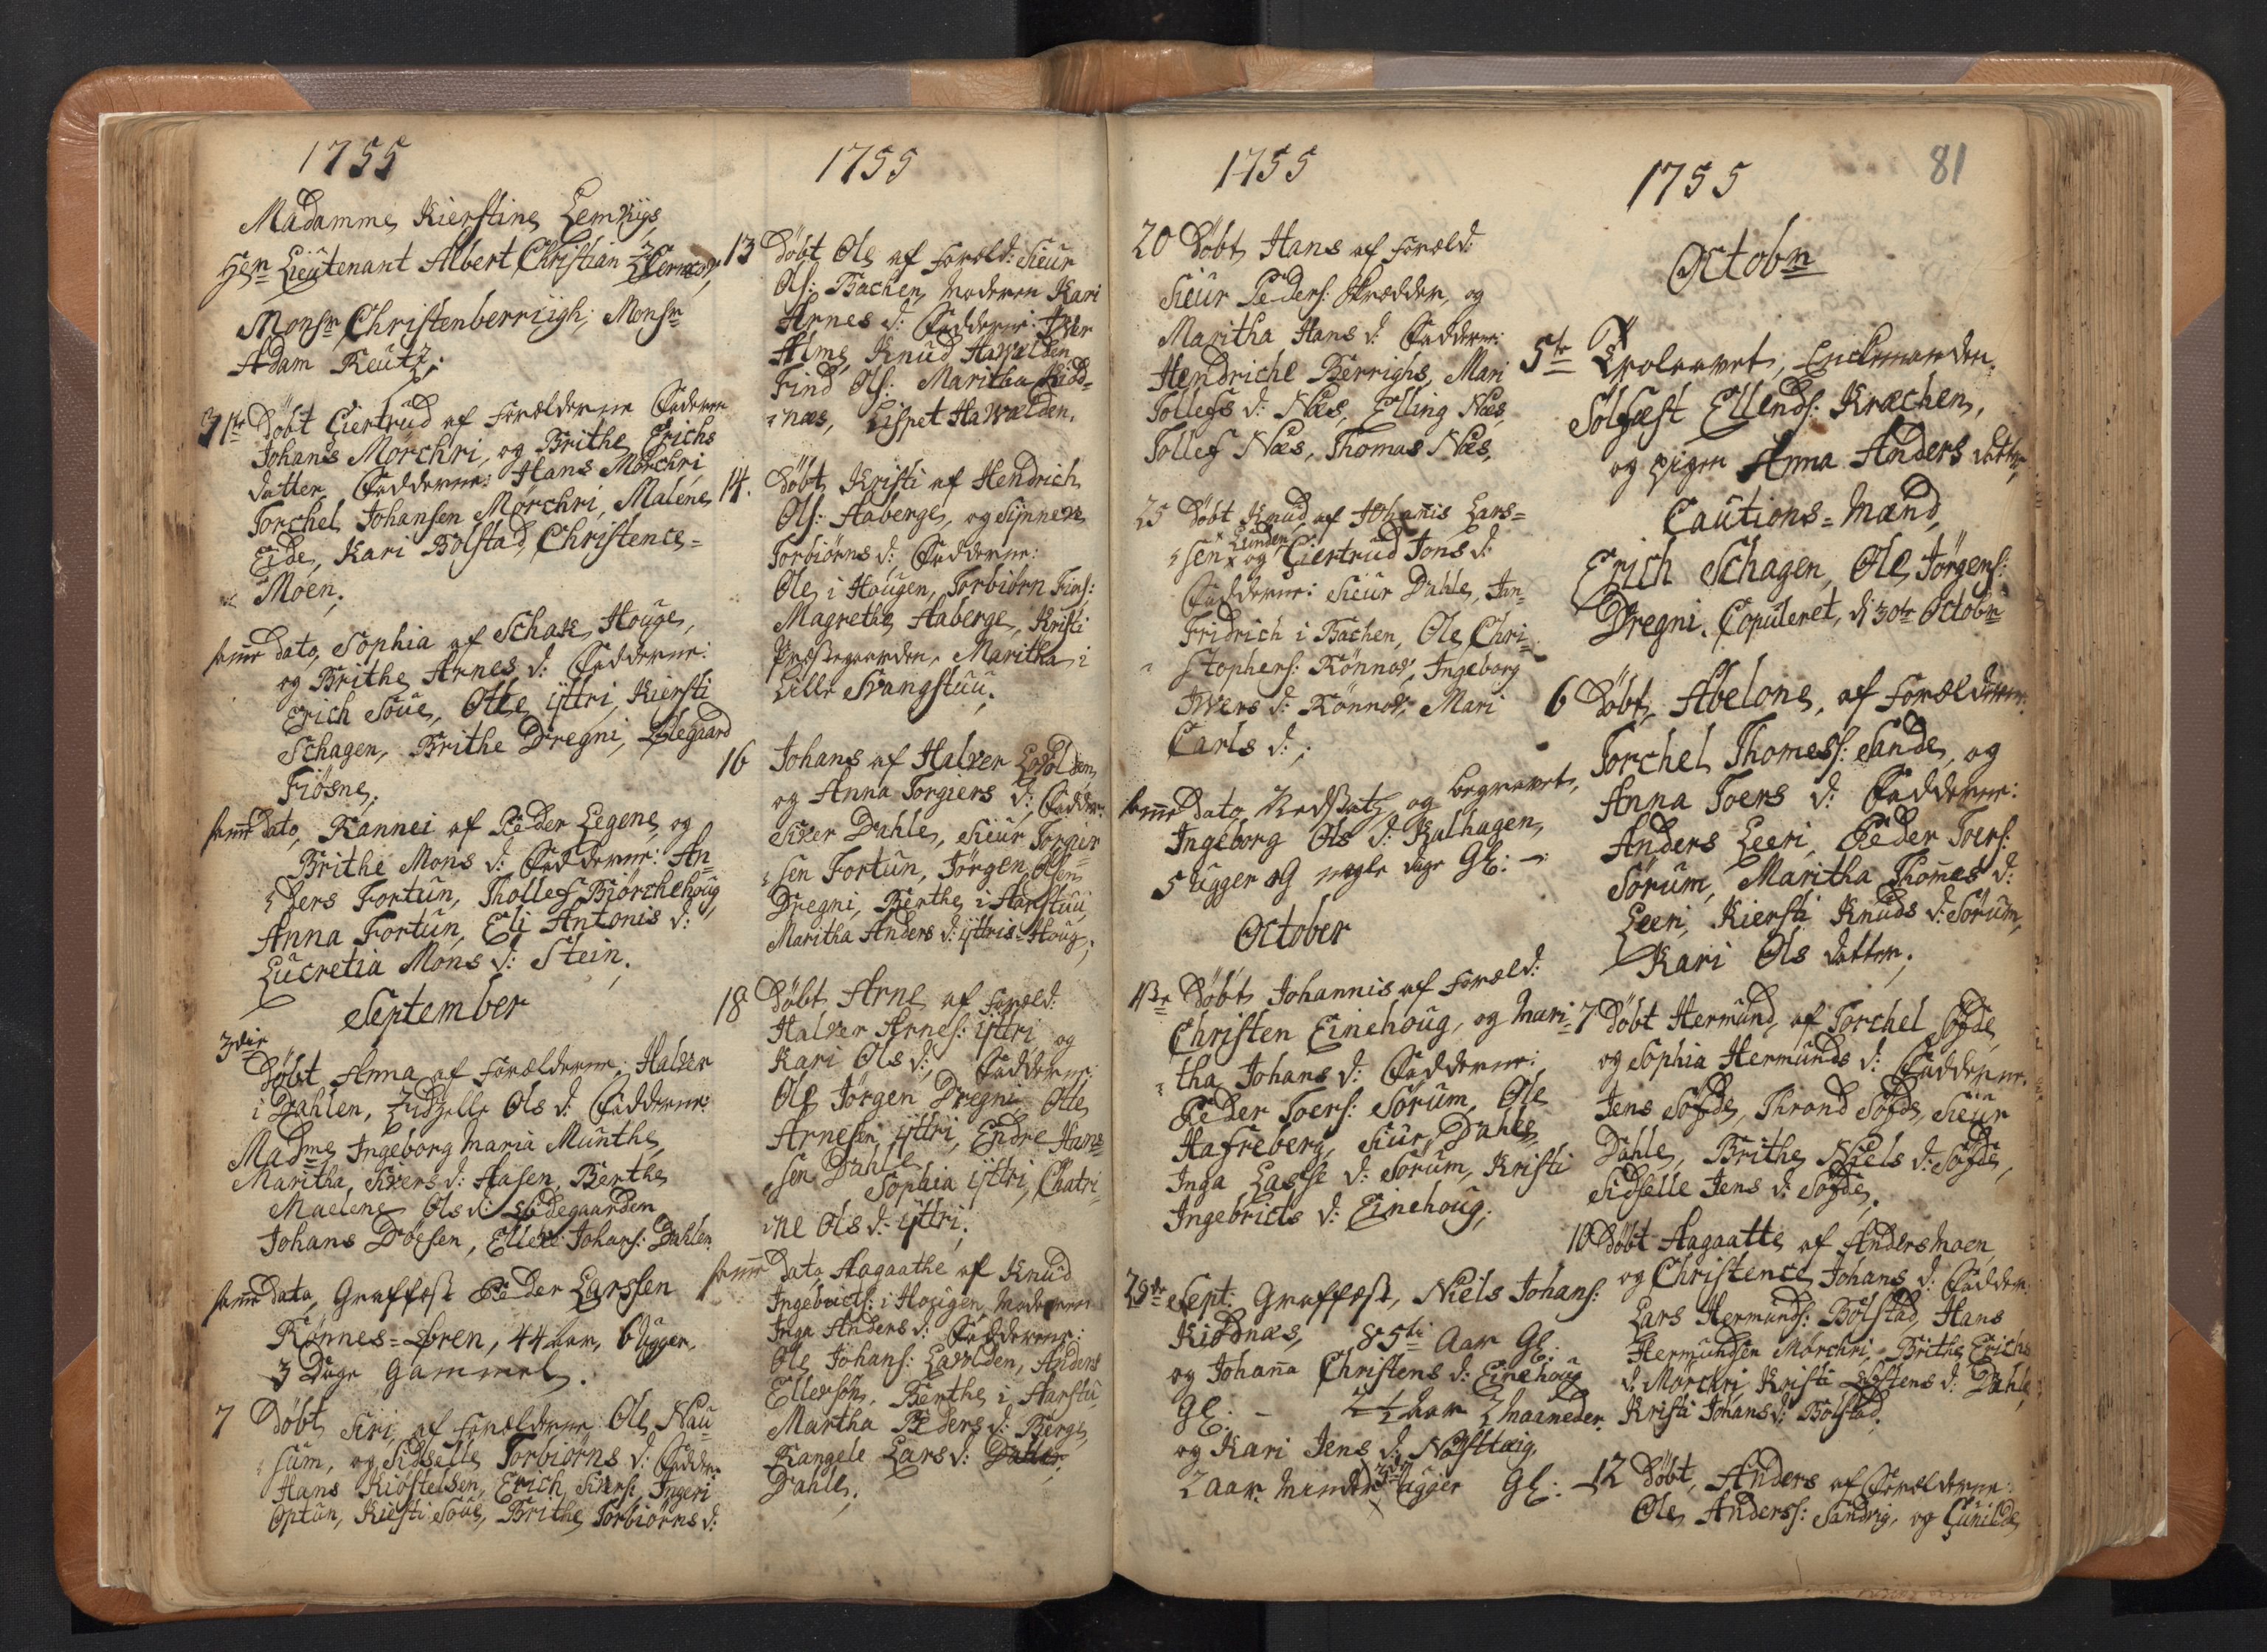 1755
Madamme Kierstine Lemkijs
Herr Lieutenant Albert Christian
Monsr Christenberriigh; Monsr
Adam Reutz;
31te Döbt Giertrud af Forælderne Faderen
Johans Morchri, og Brithe Erichs
datter Fadderne: Hans Mörchri,
Torchel Johansen Mörchri, Malene
Eide, Kari Bolstad, Christence
Moen;
same dato, Sophia af Schak Houge,
og Brithe Arnes d: Fadderne:
Erich Soue, Otte ÿttri, Kiersti
Schagen, Brithe Dregni,
Fiösne;
same dato, Rannei af Peder Legene, og
Brithe Mons d: Fadderne: An=
ders Fortun, Thollef Biörchehoug
Anna Fortun, Eli Antonis d:
Lucretia Mons d: Stein;
September
3die
Döbt Anna af Forælderne: Halver
i Dahlen, Zidzelle Ols d: Fadderne:
Madme Ingeborg Maria Munthe,
Maritha Sivers d: Aasen, Berthe
Maelene Ols d: Ødegaarden
Johans Döesen, Elleve Johans: Dahlen
same dato, Graffæst Peder Larssen
Rönnes=Øren, 44 aar, 6 ugger,
3 Dage Gammel.
7 Döbt Siri af Forælderne Ole Nau
sum, og Sidselle Torbiörns d: Fadder:
Hans Kiöstelsen, Erich Sivers: Ingeri
Optun, Kiersti Soue, Brithe Torbiörns d:
1755
13 Döbt Ole af Foræld: Sieur
Ols: Bachen Moderen Kari
Arnes d: Fadderne: Iver
Alme, Knud Hawalden
Find Ols: Maritha Kidd=
næs, Lispet Hawalden.
14. Döbt Kristi af Hendrich
Ols: Aaberge, og Sÿnneve
Torbiörns d: Fadderne:
Ole i Hougen, Torbiörn Fins:
Magrethe Aaberge, Kristi
Præstegaarden, Maritha i
Lille Svangstuu;
16 Johans af Halver
og Anna Torgiers d: Fadder:
Siver Dahle, Sieur Torgier
sen Fortun, Jörgen Olsen
Dregni, Berthe i Aarstuu
Maritha Anders d: ÿttris=Houg;
18 Döbt Arne af Foræld:
Halver Arnes: ÿttri og
Kari Ols d: Fadderne:
Ole Jörgen Dregni, Otte
Arnesen ÿttri, Endre Hans
sen Dahle
Sophia ÿttri, Chatri=
ne Ols d: ÿttri;
same dato Aagaathe af Knud
Ingebricts: i Hougen, Moderen
Inga Anders d: Fadderne:
Ole Johans: Lavolden, Anders
Ellevsön, Berthe i Aarstu
Martha Peders d: Berge,
Rangele Lars d: Dahle
Dahle;
1755
20 Döbt Hans af Foræld:
Sieur Peders: Skrædder, og
Maritha Hans d: Fadderne:
Hendriche Berrighs, Mari
Tollefs d: Næs, Elling Næs,
Tollef Næs, Thomas Næs,
25 Döbt Knud af Johanis Lars=
Lunden
sen og Giertrud Jons d:
Fadderne: Sieur Dahle, Jan
Fridrich i Bachen, Ole Chri
stophers: Rönnov, Ingeborg
Ivers d: Rönnov, Mari
Carls d:;
same dato Nedsatz og begravet,
Ingeborg Ols d: Kalhagen,
5 ugger og nogle dage Gl:
October
1ste Döbt Johannis af Foræld:
Christen Einehoug, og Mari=
tha Johans d: Fadderne:
Peder Toers: Sörum, Ole
Hafreberg, Siur Dahle
Inga Lasse d: Sörum, Kristi
Ingebricts d: Einehoug;
29de Sept: Graffæst, Niels Johans:
Kiödnæs, 85ti Aar Gl:
og Johanna Christens d: Einehoug
Gl: Aar Maaneder
og Kari Jens d: Nörsttæig
2 aar ugger Gl:
1755
81
Octobr
5te Trolaavet, Enckemanden
Solfæst Ellends: Kræchen,
og pigen Anna Anders datter
Cautions=Mænd,
Erich Schagen, Ole Jörgens:
Dregni. Copuleret, d 30te Octobr
6 Döbt Abelone, af Forælderne
Torchel Thomess: Sande, og
Anna Toers d: Fadderne:
Anders Leeri, Peder Toers:
Sörum, Maritha Thomes d:
Leeri, Kiersti Knuds d: Sörum,
Kari Ols datter;
7 Döbt Hermund af Torchel Sofde,
og Sophia Hermunds d: Fadderne.
Jens Sofde, Thrond Sofde, Sieur
Dahle, Brithe Niels d: Sofde,
Sidselle Jens d: Sofde;
10 Döbt Aagaatte af Anders Moen,
og Christence Johans d: Fadder:
Lars Hermunds: Bolstad, Hans
Hermundsen Mörchri, Brithe Erichs
d: Mörchri, Kristi Østens d: Dahle,
Kristi Johans d: Bolstad.
12 Döbt, Anders af Forælderne:
Ole Anderss: Sandvig, og Gunilde